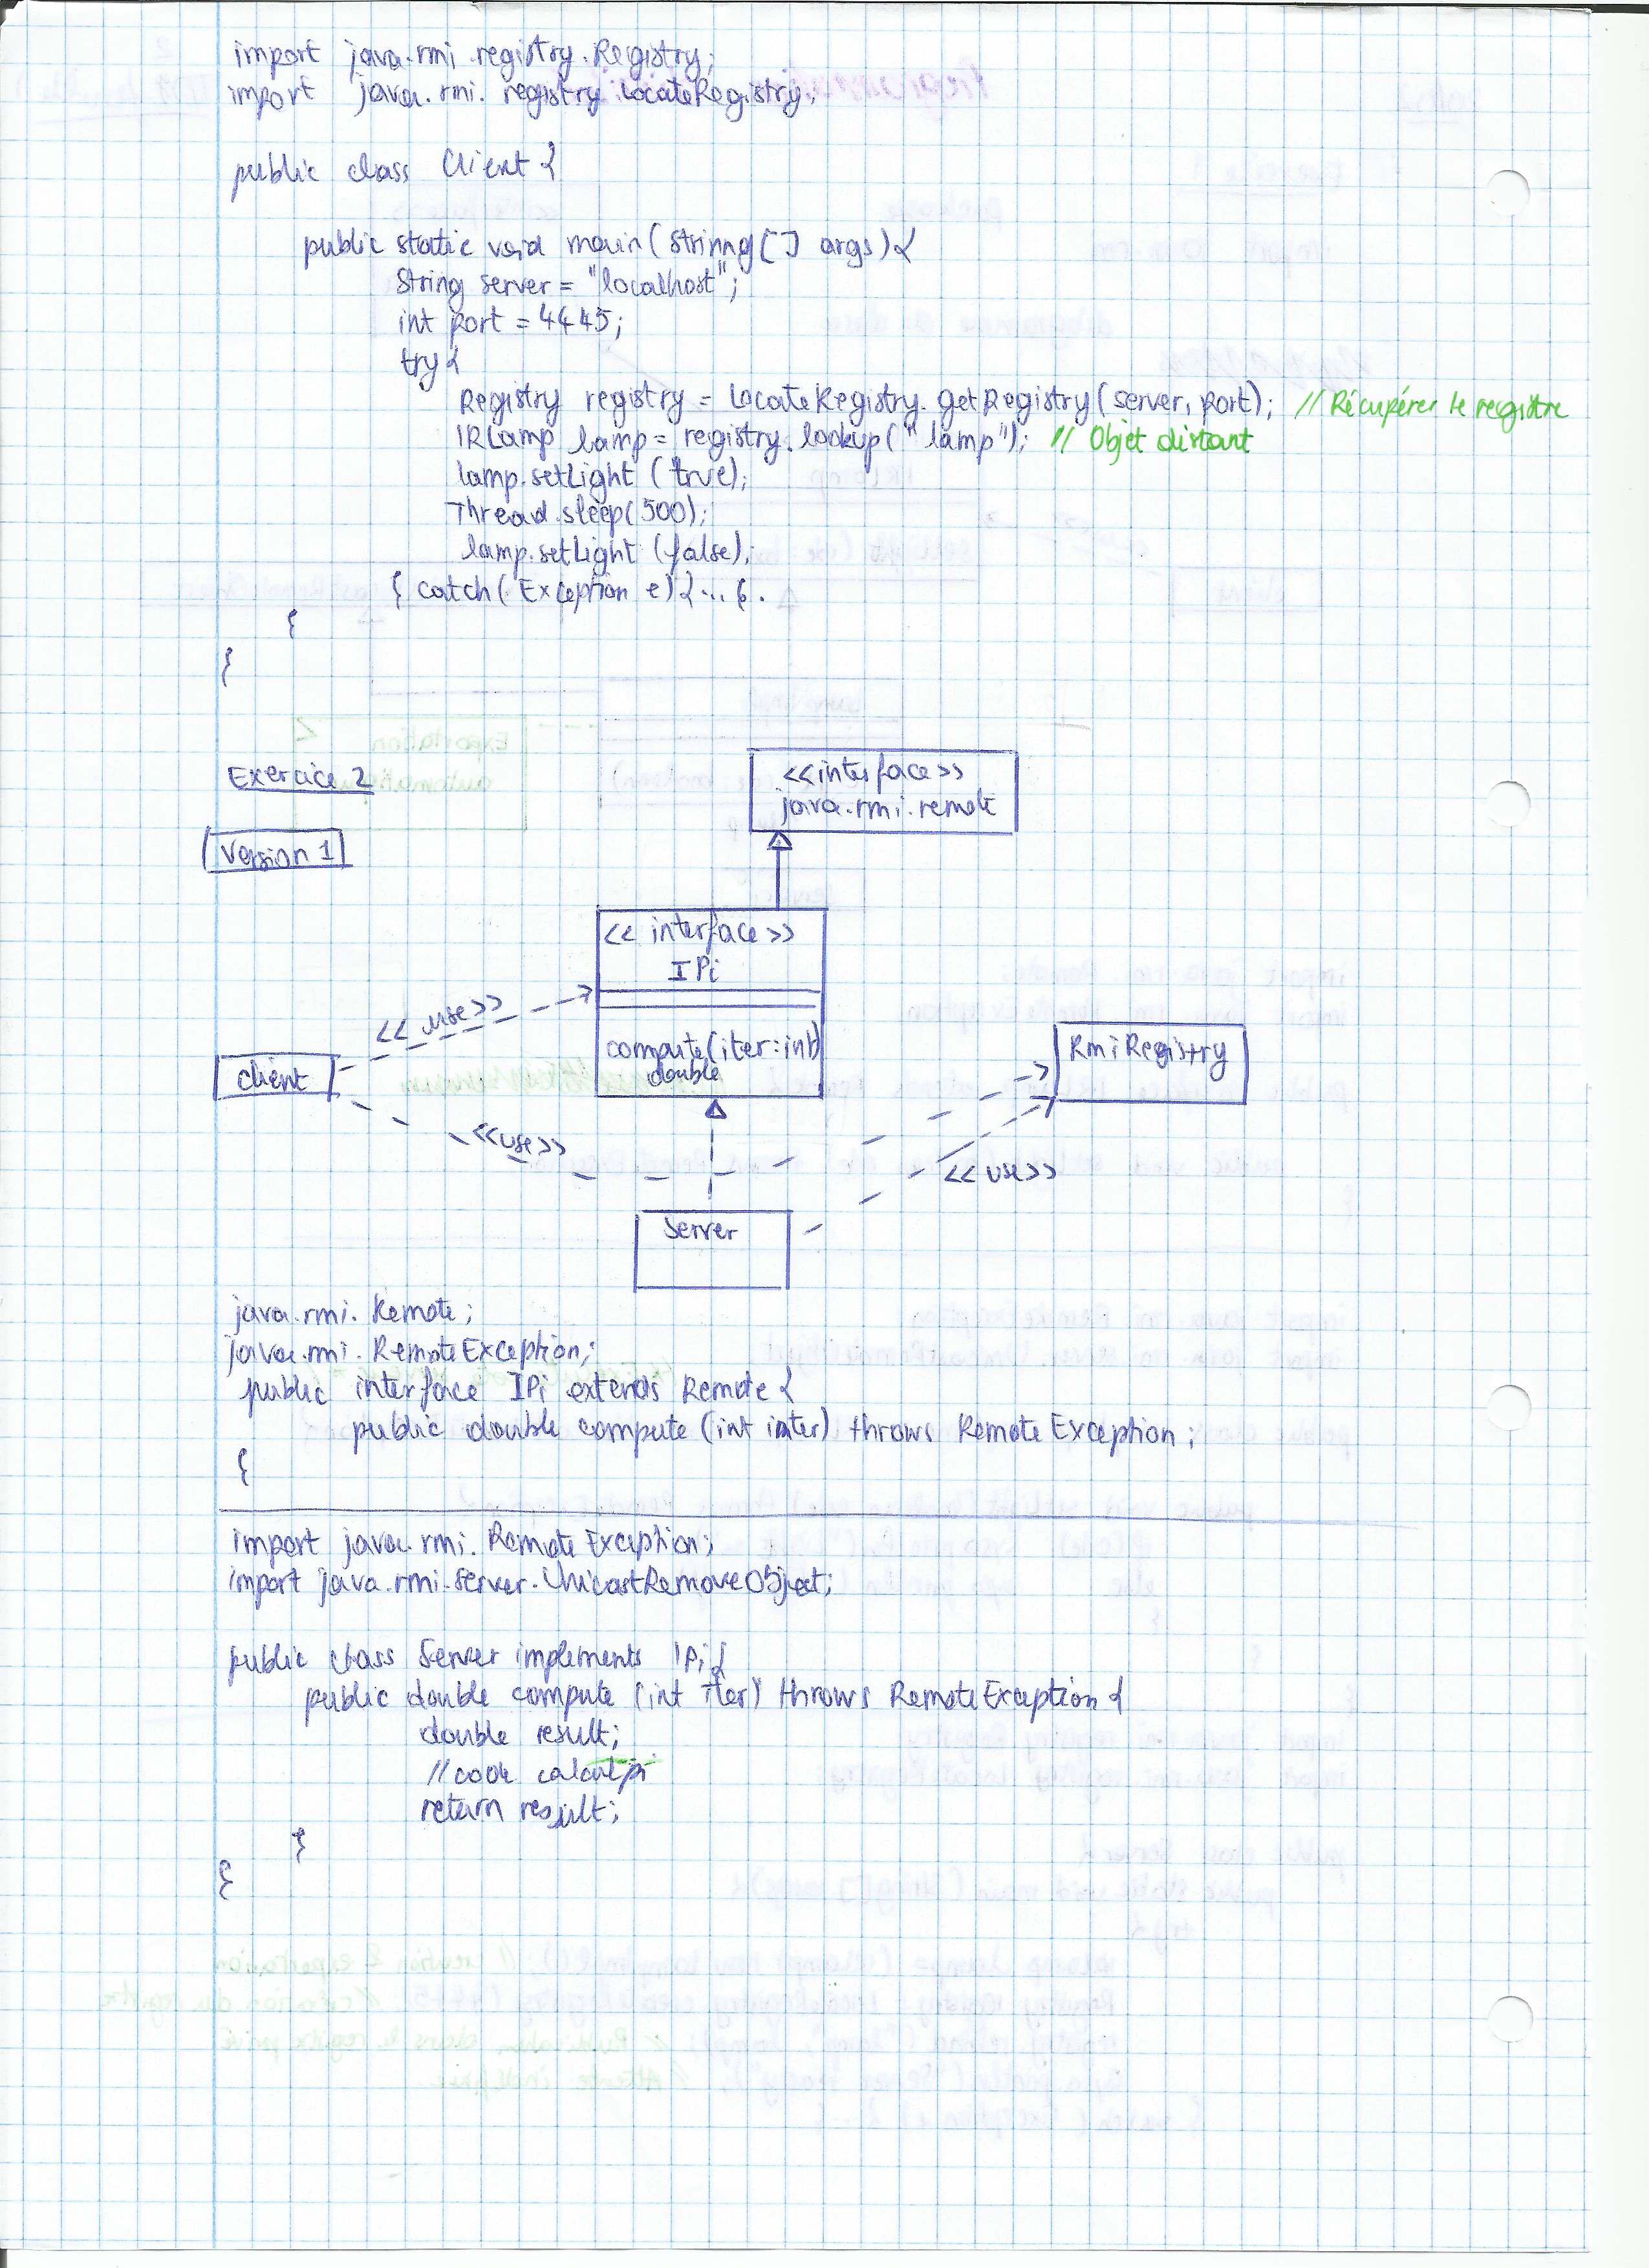 import java.rmi.registry.Registry;
import java.rmi.registry.LocateRegistry;
public class Client {
public static void main(Strinng[] args){
String server = "localhost";
int port = 4445;
try{
Registry registry = LocateRegistry.getRegistry(server, port); // Récupérer le registre
IRLamp lamp = registry.lookup("lamp"); // Objet distant
lamp.setLight (true);
Thread.sleep(500);
lamp.setLight (false);
} catch(Exception e){...}.
}
}
Exercice 2
Version 1
<<interface>>
java.rmi.remote
<< interface >>
IPi
compute(iter:int)
double
<< use >>
client
RmiRegistry
<<use>>
<< use>>
Server
java.rmi.Remote;
java.rmi.RemoteException;
public interface IPi extends Remote {
public double compute (int inter) throws RemoteException;
}
import java.rmi.RemoteException;
import java.rmi.server.UnicastRemoveObject;
public class Server implements IPi{
public double compute (int iter) throws RemoteException {
double result;
//code calcul pi
return result;
}
}